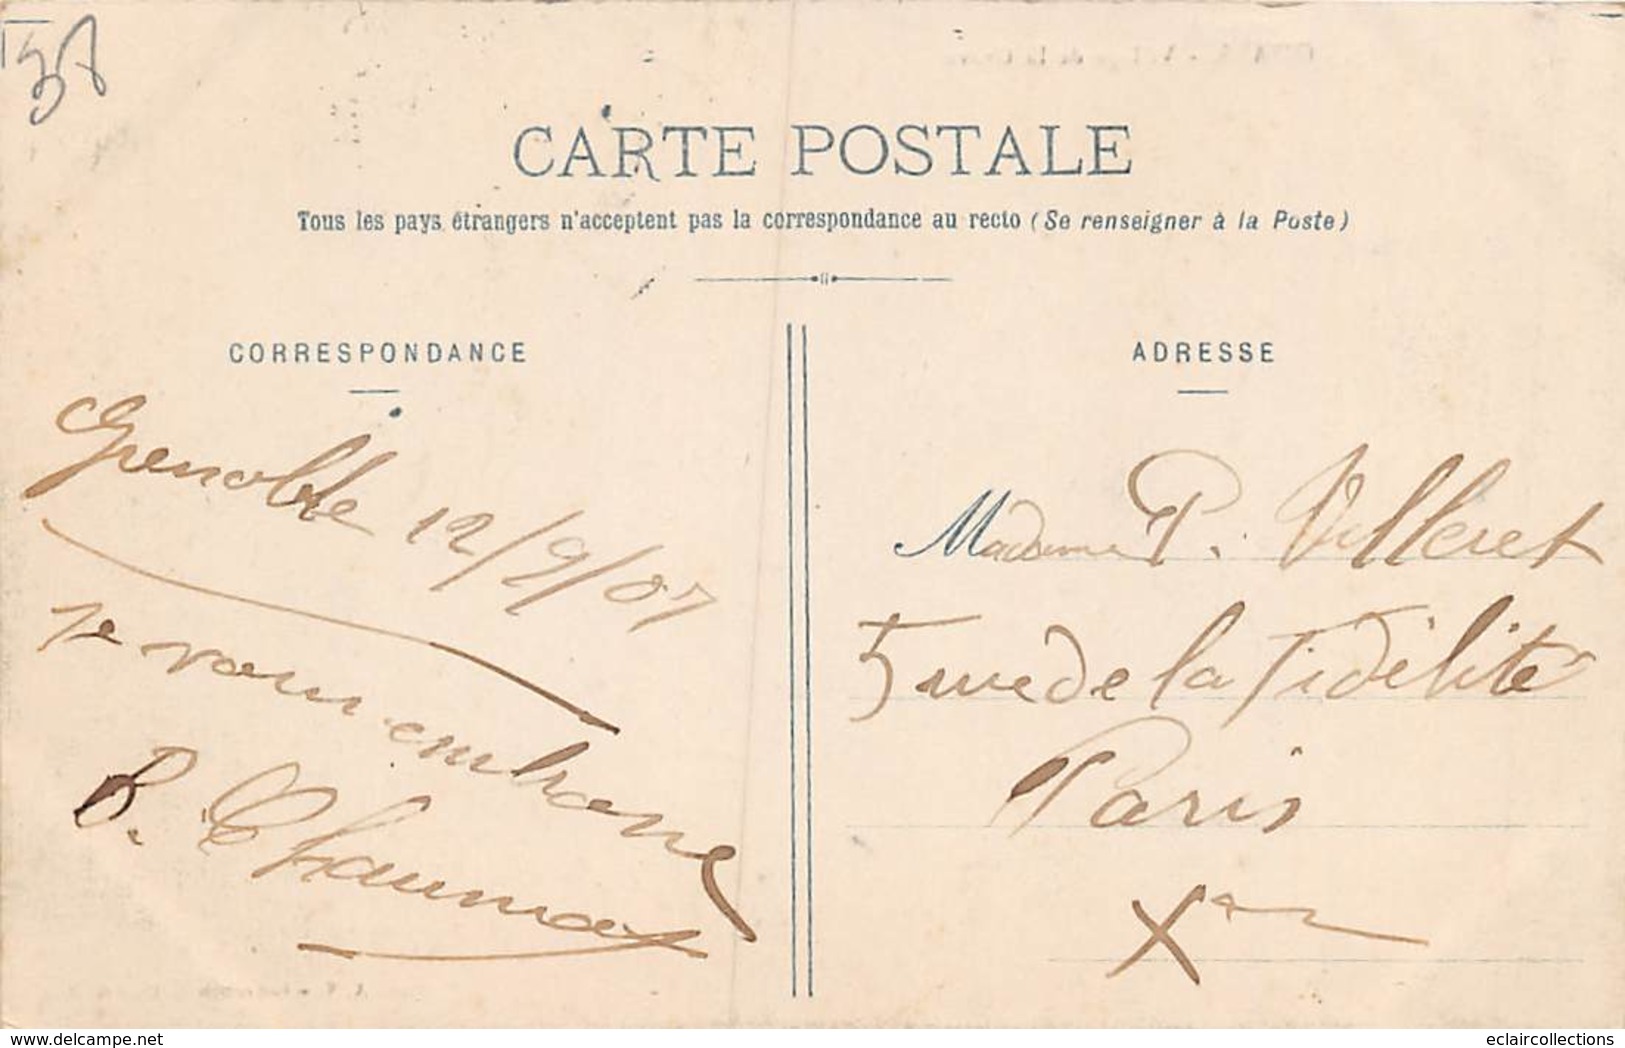 38
CARTE POSTALE
Tous les pays étrangers n'acceptent pas la correspondance au recto (Se renseigner à la Poste)
CORRESPONDANCE
Grenoble 12/9/07
Je vous embrasse
B. Chaumat
ADRESSE
Madame P. Villeret
5 rue de la Fidélité
Paris
Xme
delcampe.net
eclaircollections